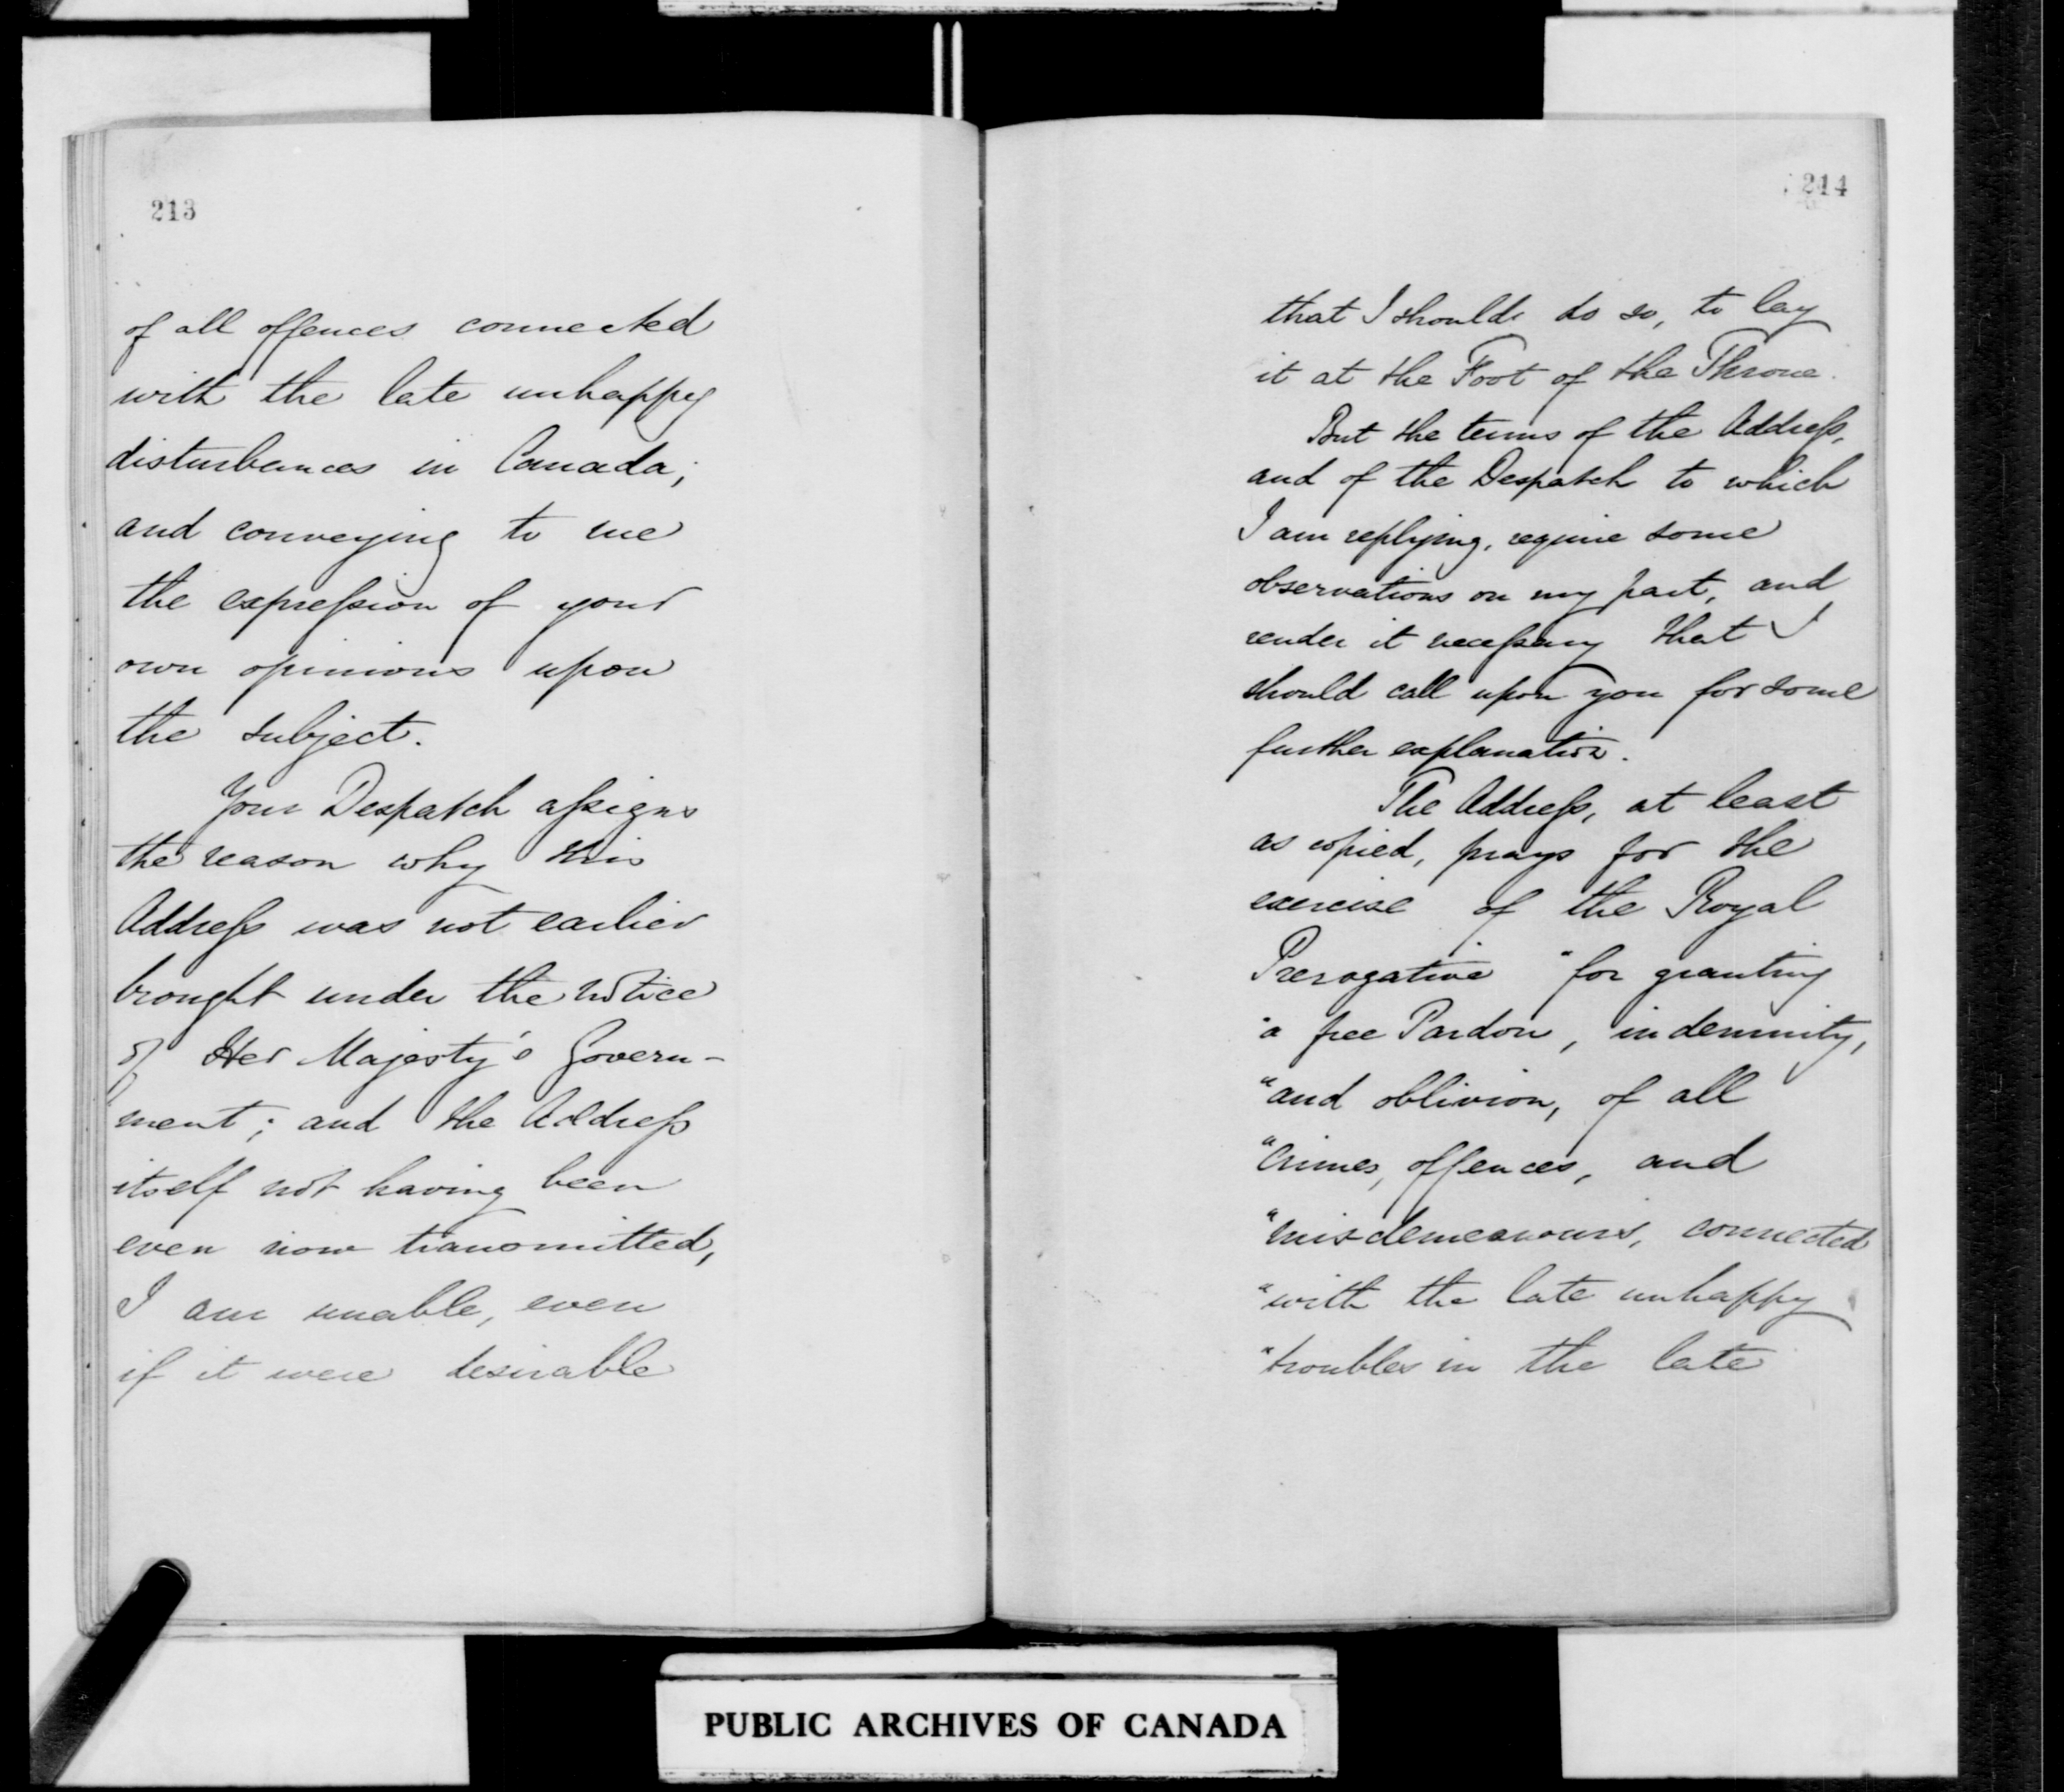 213
of all offences connected
with the late unhappy
disturbances in Canada;
and conveying to me
the expression of your
own opinions upon
the subject.
Your Despatch assigns
the reason why this
Address was not earlier
brought under the notice
of Her Majesty's Govern-
ment; and the Address
itself not having been
even now transmitted,
I am unable, even
if it were desirable
214
that I should do so, to lay
it at the Foot of the Throne.
But the terms of the Address,
and of the Despatch to which
I am replying, require some
observations on my part, and
render it necessary that I
should call upon you for some
further explanation.
The Address, at least
as copied, prays for the
exercise of the Royal
Prerogative "for granting
"a free Pardon, indemnity,
"and oblivion, of all
"Crimes, offences, and
"misdemeanours, connected
"with the late unhappy
"troubles in the late
PUBLIC ARCHIVES OF CANADA